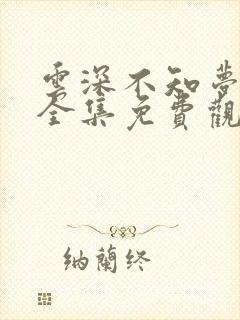 雲深不知夢
全集免費觀
纳蘭终